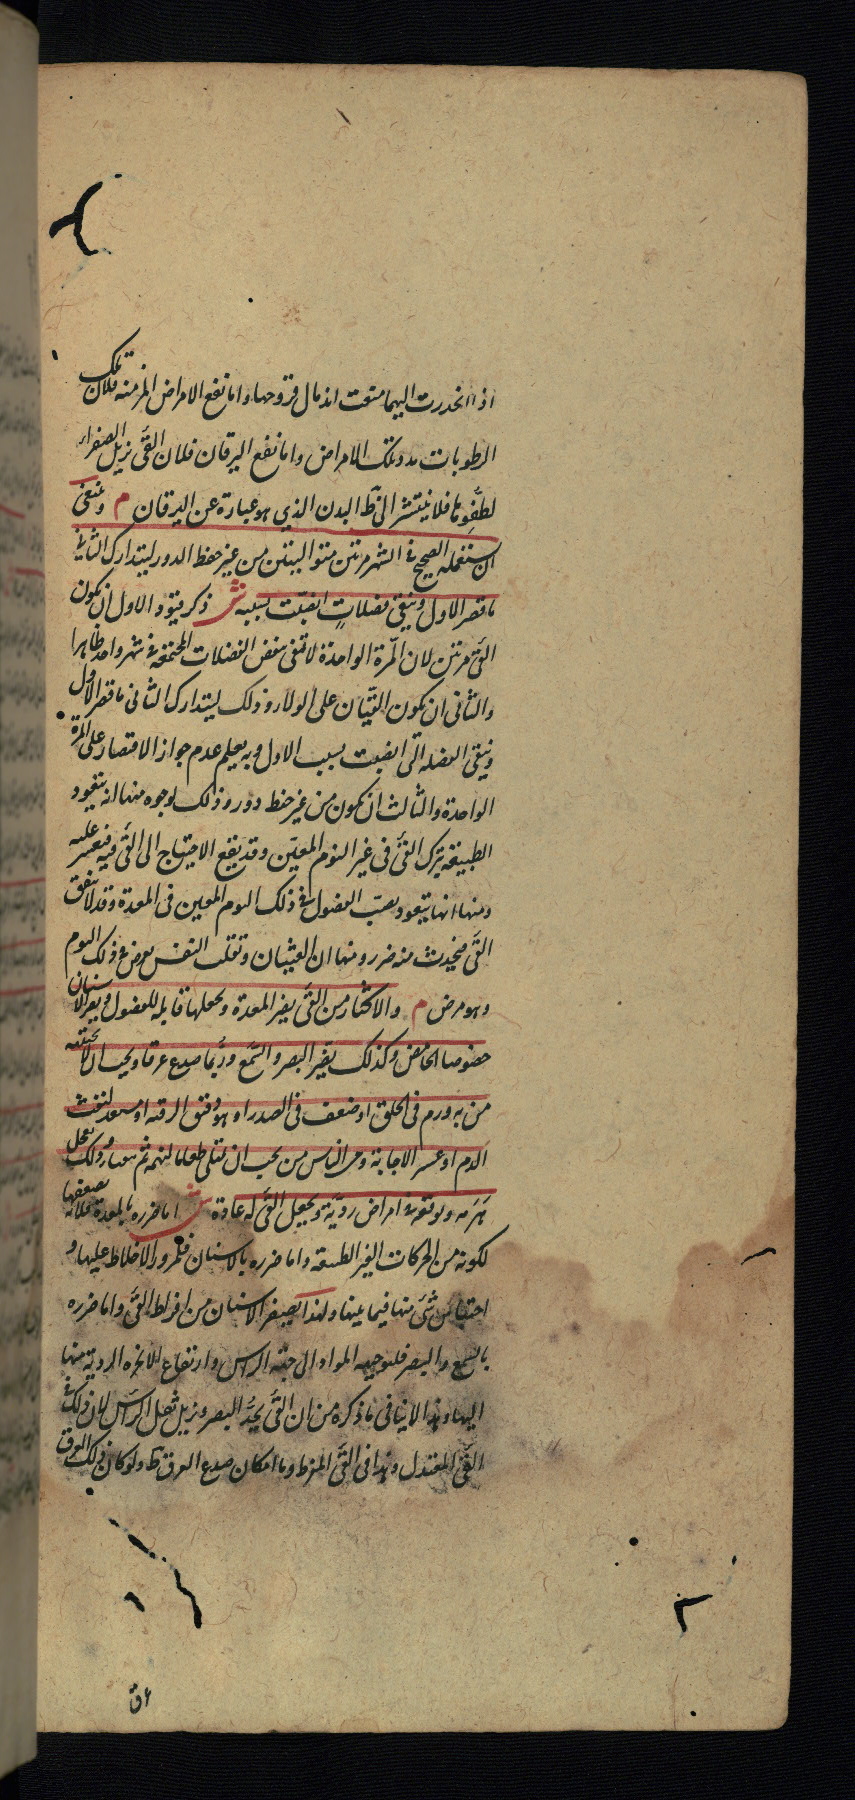 اذا انحدرت اليها منعت اندمال قروحها واما نفع الامراض المزمنه فلان تلك
الرطوبات مدد تلك الامراض واما نفع اليرقان فلان القئ يزيل الصفراء
فلا ينتشر الى البدن الذي هو عبارة عن اليرقان م وينبغى
ان يستعمله الصحيح فى الشهر مرتين متواليتين من غير حفظ الدور ليتدارك الثانى
ما قصر الاول وينقى فضلات انصبت بسببه ش ذكر قيود الاول ان يكون
القئ مرتين لان المرة الواحدة لا تفى بنفض الفضلات المجتمعة فى شهر واحد ظاهرا
والثانى ان يكون القيان على الولاء وذلك ليتدارك الثانى ما قصر الاول
وينقى الفضله التى انصبت بسبب الاول وبه يعلم عدم جواز الاقتصار على المرة
الواحدة والثالث ان يكون من غير حفظ دور وذلك لوجوه منها انه يتعود
الطبيعة بترك القئ فى غير اليوم المعين وقد يقع الاحتياج الى القئ فيه فيعسر عليه
ومنها انها يتعود بصب الفضول فى ذلك اليوم المعين فى المعدة وقد لا يتفق
القئ فيحدث منه ضرر ومنها ان الغثيان وتقلب النفس يعرض فى ذلك اليوم
وهو مرض م والاكثار من القئ يضر المعدة ويجعلها قابله للفضول ويضر الاسنان
خصوصا الحامض وكذلك يضر البصر والسمع وربما صدع عرقا ويجب ان لا يجتنبه
من به ورم فى الحلق او ضعف فى الصدر او هو دقيق الرقبه او مستعد لنفث
الدم او عسر الاجابة ومن الناس من يحب ان يمتلى طعاما لنهمه ثم وذلك يعجل
هرمه ويوقعه فى امراض رديه ويجعل القئ له عادة ش اما ضرره بالمعدة فلانه يضعفها
لكونه من الحركات الغير الطبيعة واما ضرره بالاسنان فلمرور الاخلاط عليها و
احتباس شئ منها فيما بينها ولهذا يصفر الاسنان من افراط القئ واما ضرره
بالسمع والبصر فلتوجيهه المواد الى جهة الراس وارتفاع الابخره الردية منها
اليها وهذا لا ينافى ما ذكره من ان القئ يحد البصر ويزيل ثقل الراس لان ذلك فى
القئ المعتدل وهذا فى القئ المفرط وما امكان صدع العرق ولو كان ذلك العرق